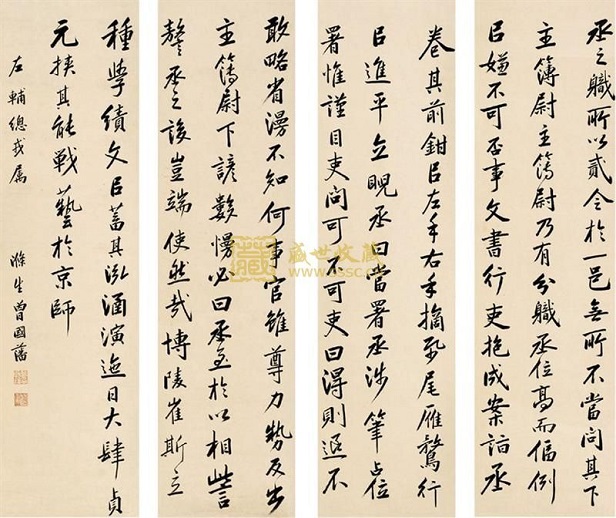 丞之職所以貳令於一邑無所不當問其下
主簿尉主簿尉乃有分職丞位高而偪例
以嫌不可否事文書行吏抱成案詣丞
卷其前鉗以左手右手摘紙尾雁鶩行
以進平立睨丞曰當署丞涉筆占位
署惟謹目吏問可不可吏曰得則退不
敢略省漫不知何事官雖尊力勢反出
主簿尉下諺數慢必曰丞至於以相訾
謷丞之設豈端使然哉博陵崔斯立
種學績文以蓄其泓涵演迤日大肆貞
元挾其能戰藝於京師
左輔總戎屬
滌生曾國藩
盛世收藏